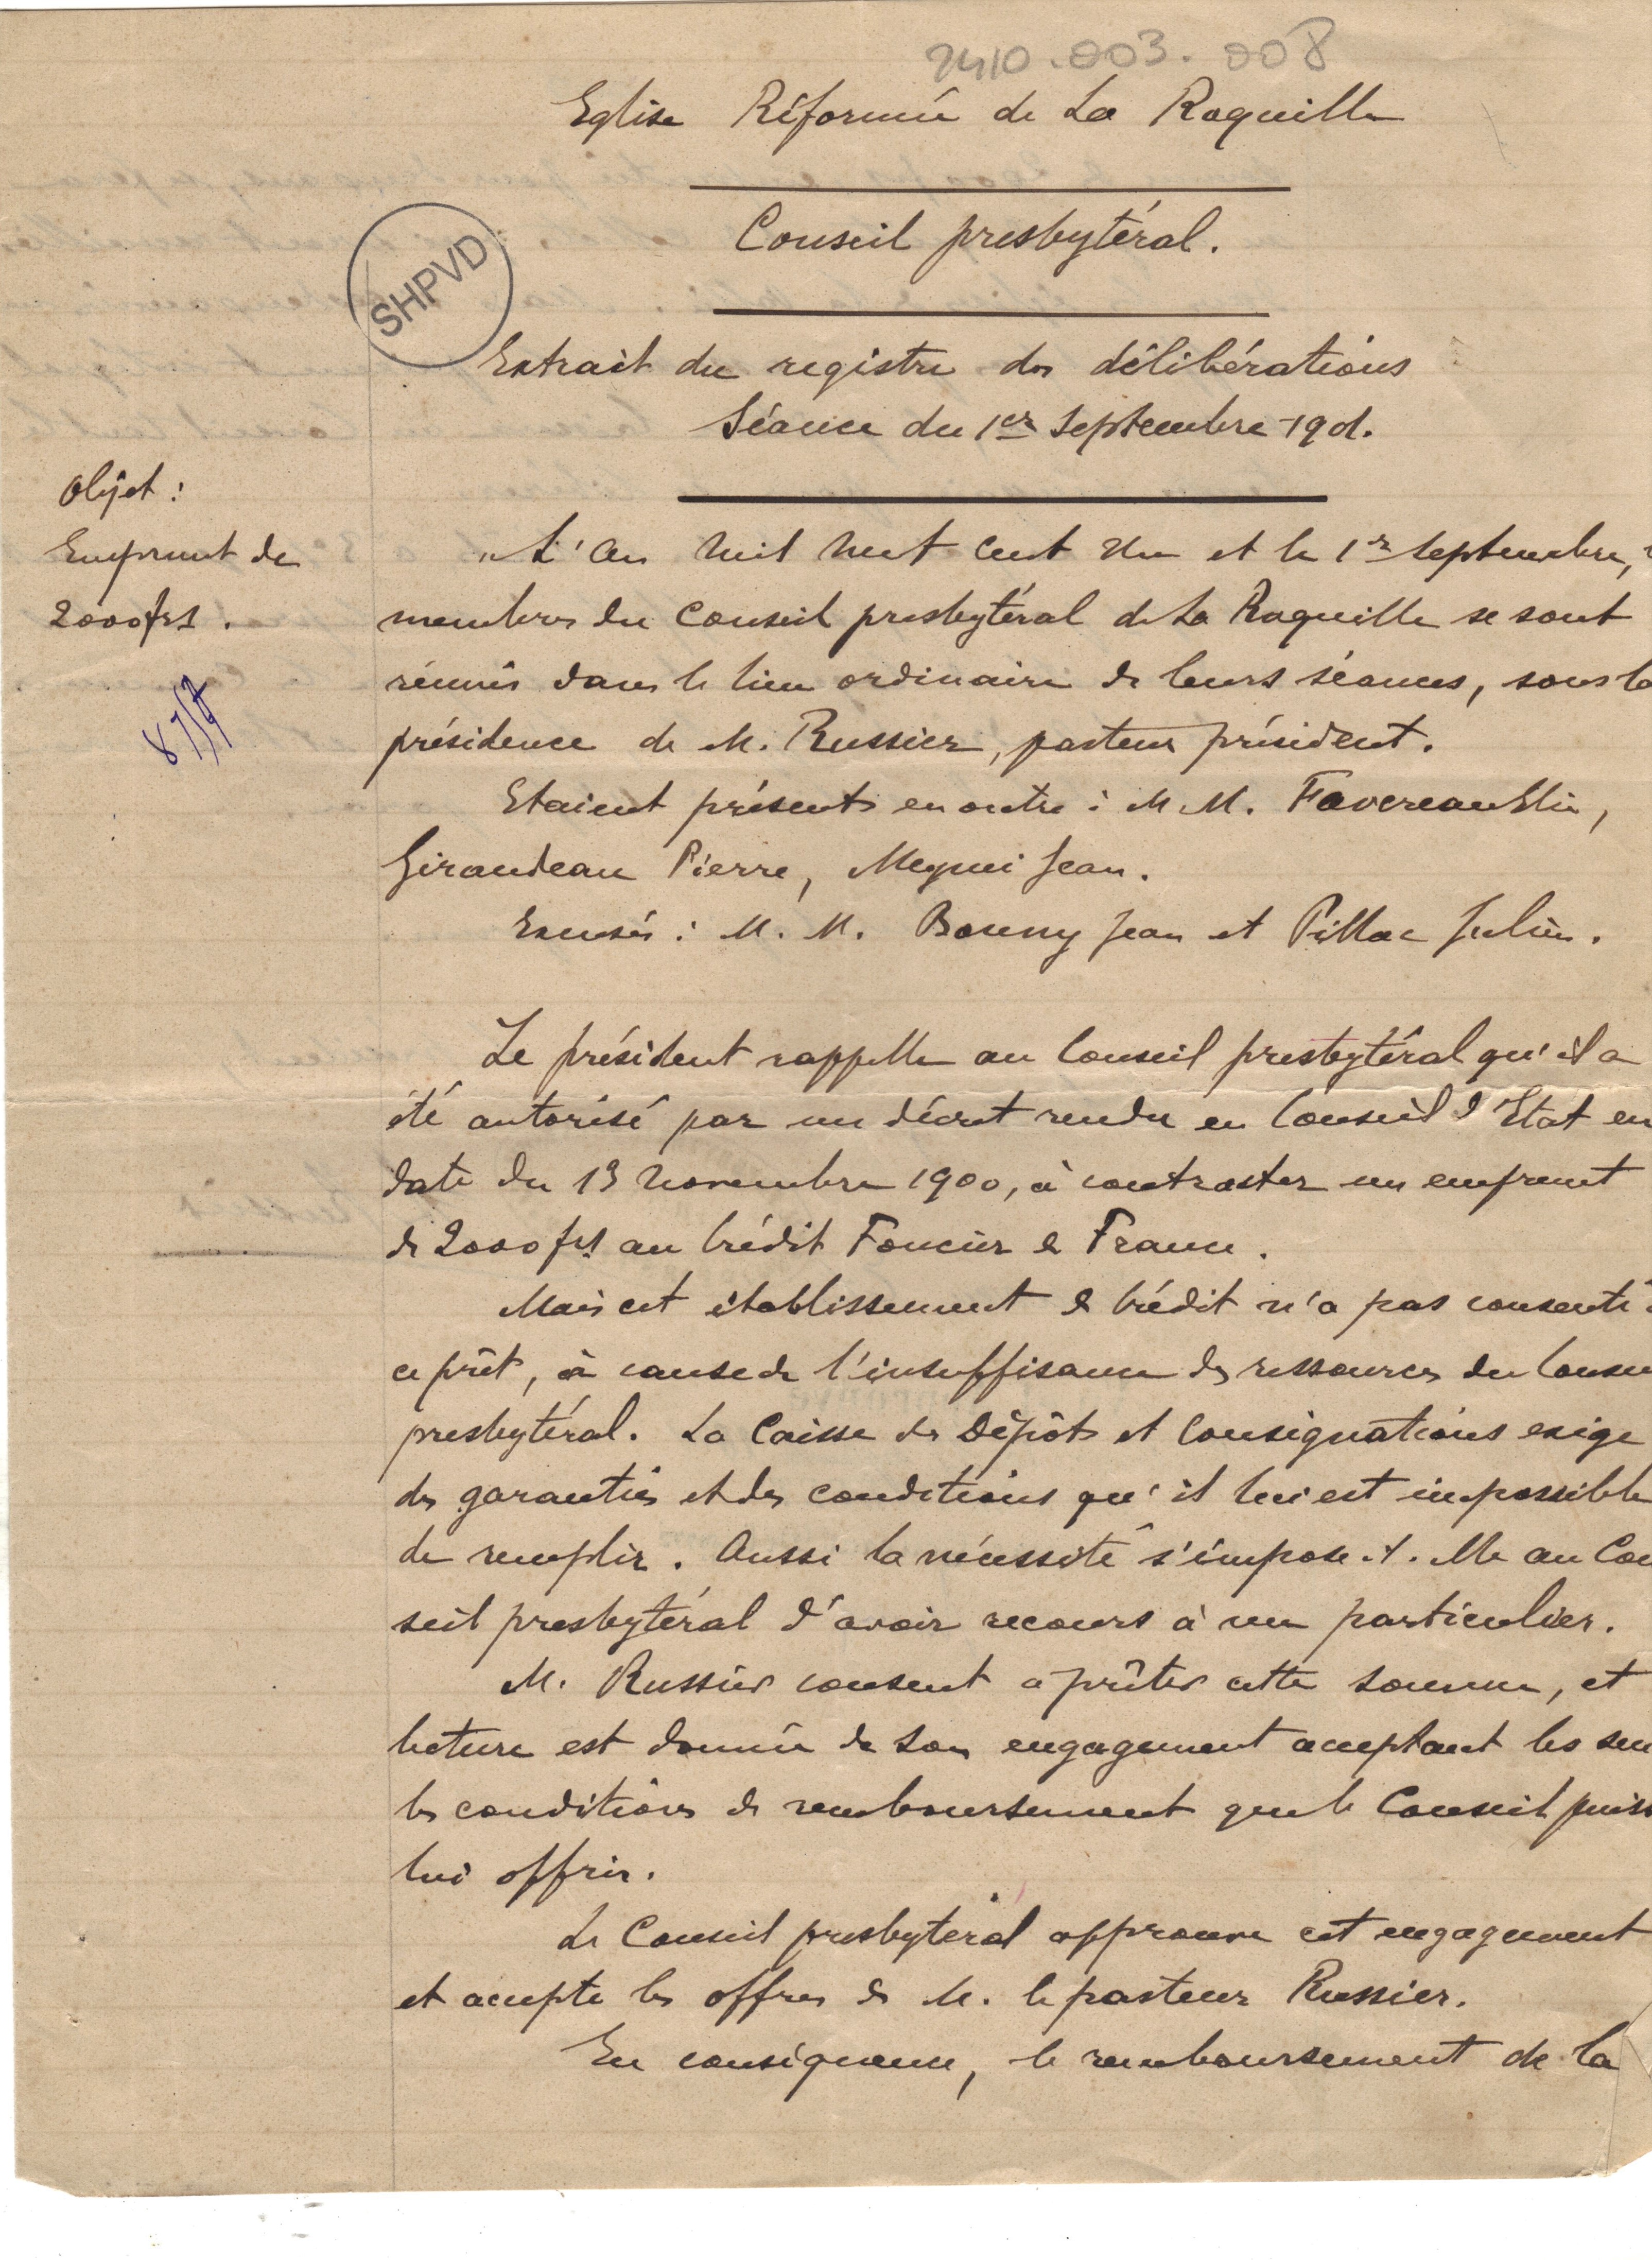 2410.003.008
Eglise Réformée de La Roquille
Conseil presbytéral.
SHPVD
Extrait du registre des délibérations
Séance du 1er Septembre 1901.
Objet :
Emprunt de
2000 frs.
"L'An Mil neuf cent Un et le 1er Septembre,
membres du Conseil presbytéral de La Roquille se sont
réunis dans le lieu ordinaire de leurs séances, sous la
présidence de M. Russier, pasteur président.
Etaient présents en outre : M M. Favereau Elie,
Giraudeau Pierre, Jean.
Excusés : M. M. Bouny Jean et Pillac Julien.
Le président rappelle au Conseil presbytéral qu'il a
été autorisé par un décret rendu en Conseil d'Etat en
date du 13 Novembre 1900, à contracter un emprunt
de 2000 frs au Crédit Foncier de France.
Mais cet établissement de Crédit n'a pas consenti
ce prêt, à cause de l'insuffisance des ressources du Conse
presbytéral. La Caisse des Dépôts et Consignations exige
des garanties et des conditions qu'il lui est impossible
de remplir. Aussi la nécessité s'impose-t-elle au Con
seil presbytéral d'avoir recours à un particulier.
M. Russier consent à prêter cette somme, et
lecture est donnée de son engagement acceptant les seu
les conditions de remboursement que le Conseil puiss
lui offrir.
Le Conseil presbytéral approuve cet engagement
et accepte les offres de M. le pasteur Russier.
En conséquence, le remboursement de la